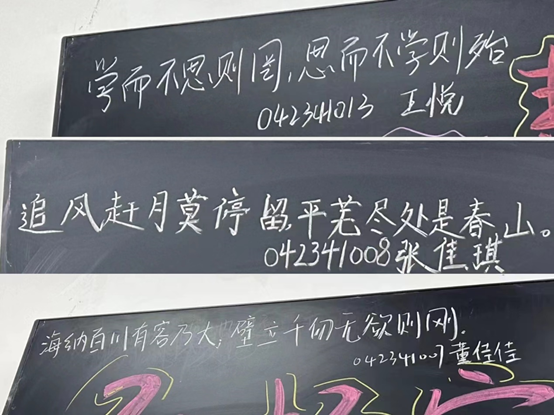 学而不思则罔,思而不学则殆
042341013 王悦
追风赶月莫停留,平芜尽处是春山。
042341008张佳琪
海纳百川有容乃大;壁立千仞无欲则刚.
042341007 董佳佳